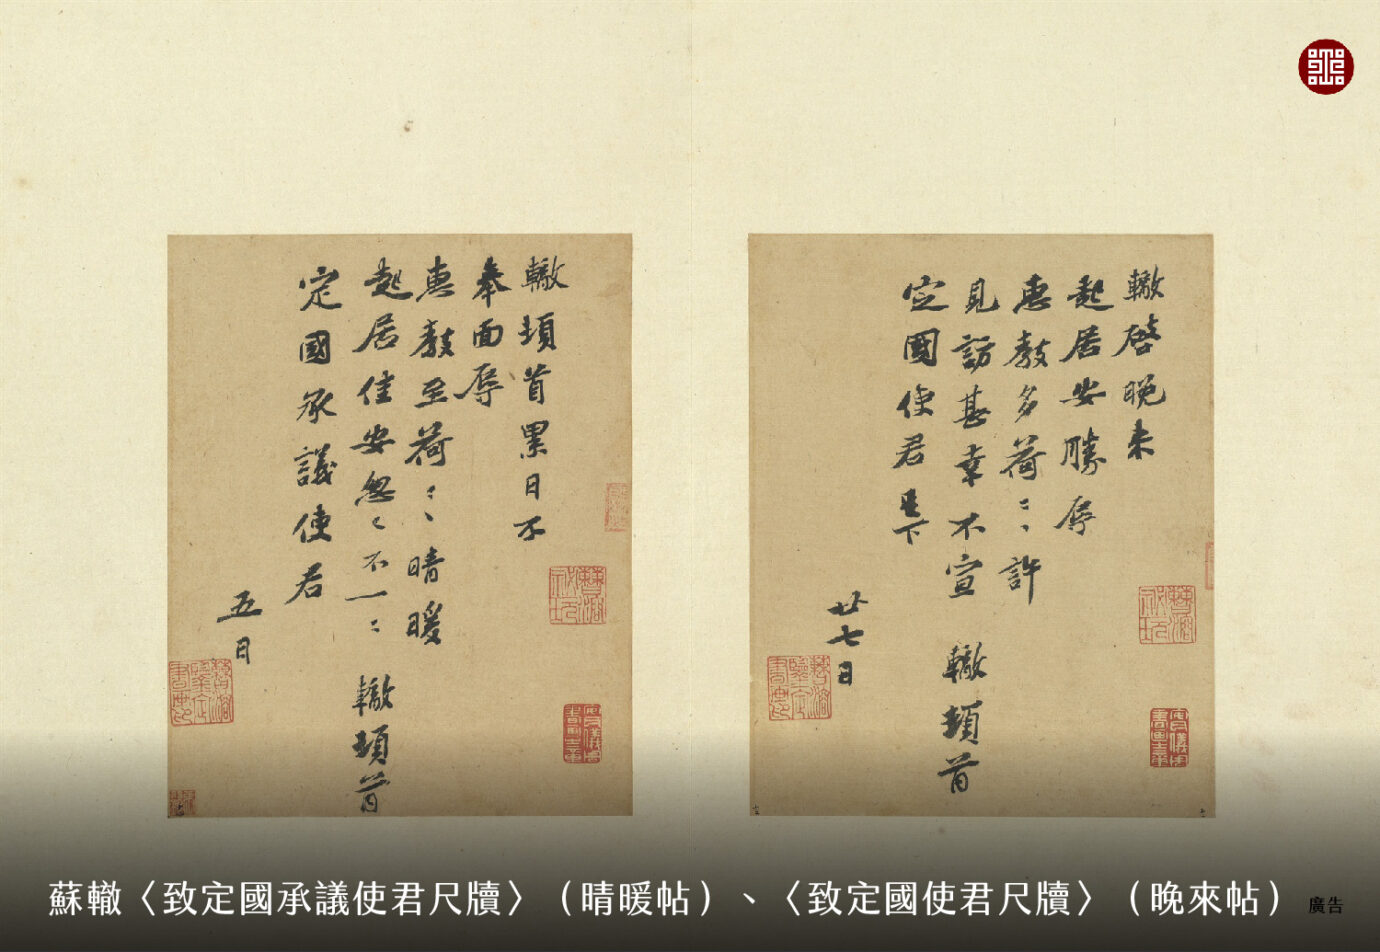 轍啓晚来
起居安勝辱
惠教多荷〻許
見訪甚幸不宣 轍頓首
定國使君
廿七日
轍頓首累日不
奉面辱
惠教至荷〻晴暖
起居佳安怱〻不一〻 轍頓首
定國承議使君
五日
蘇轍〈致定國承議使君尺牘〉（晴暖帖）、〈致定國使君尺牘〉（晚來帖） 廣告